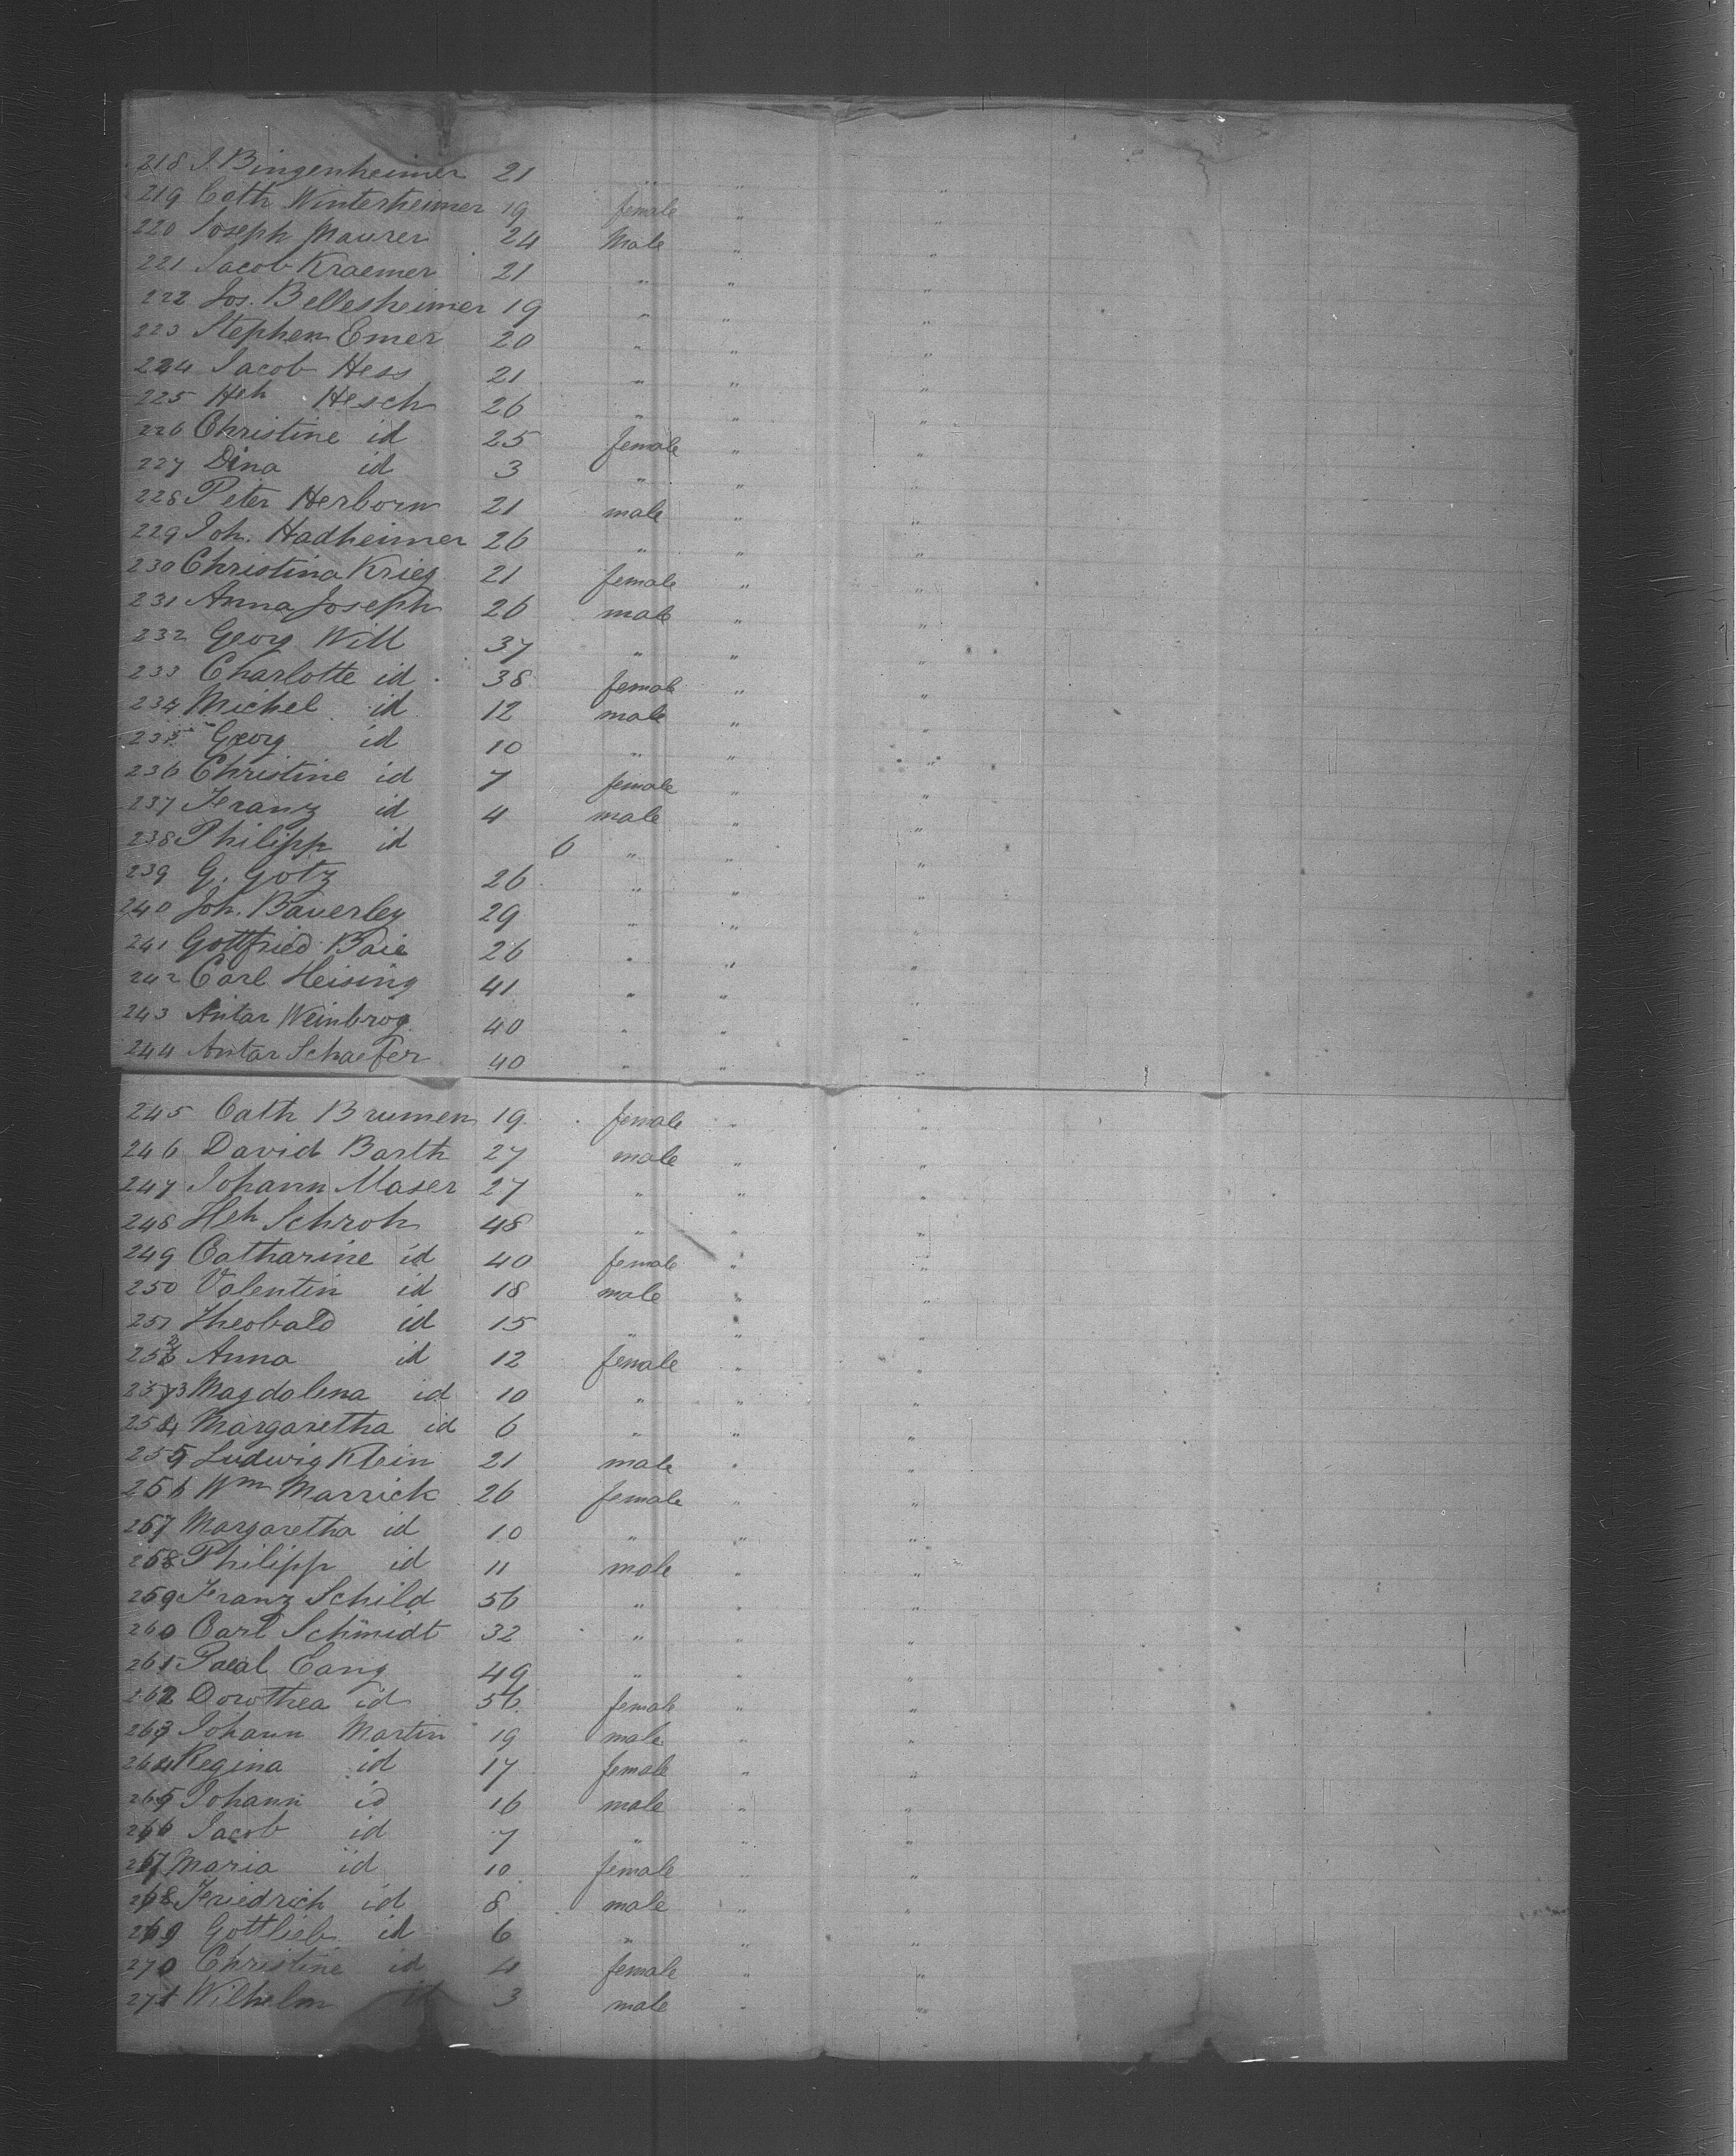 218 J. Bingenheimer 21 " " "
219 Cath Winterheimer 19 female " "
220 Joseph Maurer 24 Male " "
221 Jacob Kraemer 21 " " "
222 Jos. Bellesheimer 19 " " "
223 Stephen Emer 20 " " "
224 Jacob Hess 21 " " "
225 Hch Hesch 26 " " "
226 Christine id 25 female " "
227 Dina id 3 " " "
228 Peter Herborn 21 male " "
229 Joh. Hadheimer 26 " " "
230 Christina Krieg 21 female " "
231 Anna Joseph 26 male " "
232 Georg Will 37 " " "
233 Charlotte id 38 female " "
234 Michel id 12 male " "
235 Georg id 10 " " "
236 Christine id 7 female " "
237 Franz id 4 male " "
238 Philipp id 6 " " "
239 G. Gotz 26 " " "
240 Joh. Bauerley 29 " " "
241 Gottfried Baie 26 " " "
242 Carl Heising 41 " " "
243 Antar Weinbrog 40 " " "
244 Antar Schaefer 40 " " "
245 Cath Brumen 19 female " "
246 David Barth 27 male " "
247 Johann Maser 27 " " "
248 Hch Schroh 48 " " "
249 Catharine id 40 female " "
250 Valentin id 18 male " "
251 Theobald id 15 " " "
252 Anna id 12 female " "
253 Magdalena id 10 " " "
254 Margaretha id 6 " " "
255 Ludwig Klein 21 male " "
256 Wm Marrick 26 female " "
257 Margaretha id 10 " " "
258 Philipp id 11 male " "
259 Franz Schild 56 " " "
260 Carl Schmidt 32 " " "
261 Paeal Cang 49 " " "
262 Dorothea id 56 female " "
263 Johann Martin 19 male " "
264 Regina id 17 female " "
265 Johann id 16 male " "
266 Jacob id 7 " " "
267 Maria id 10 female " "
268 Friedrich id 8 male " "
269 Gottlieb id 6 " " "
270 Christine id 4 female " "
271 Wilhelm id 3 male " "